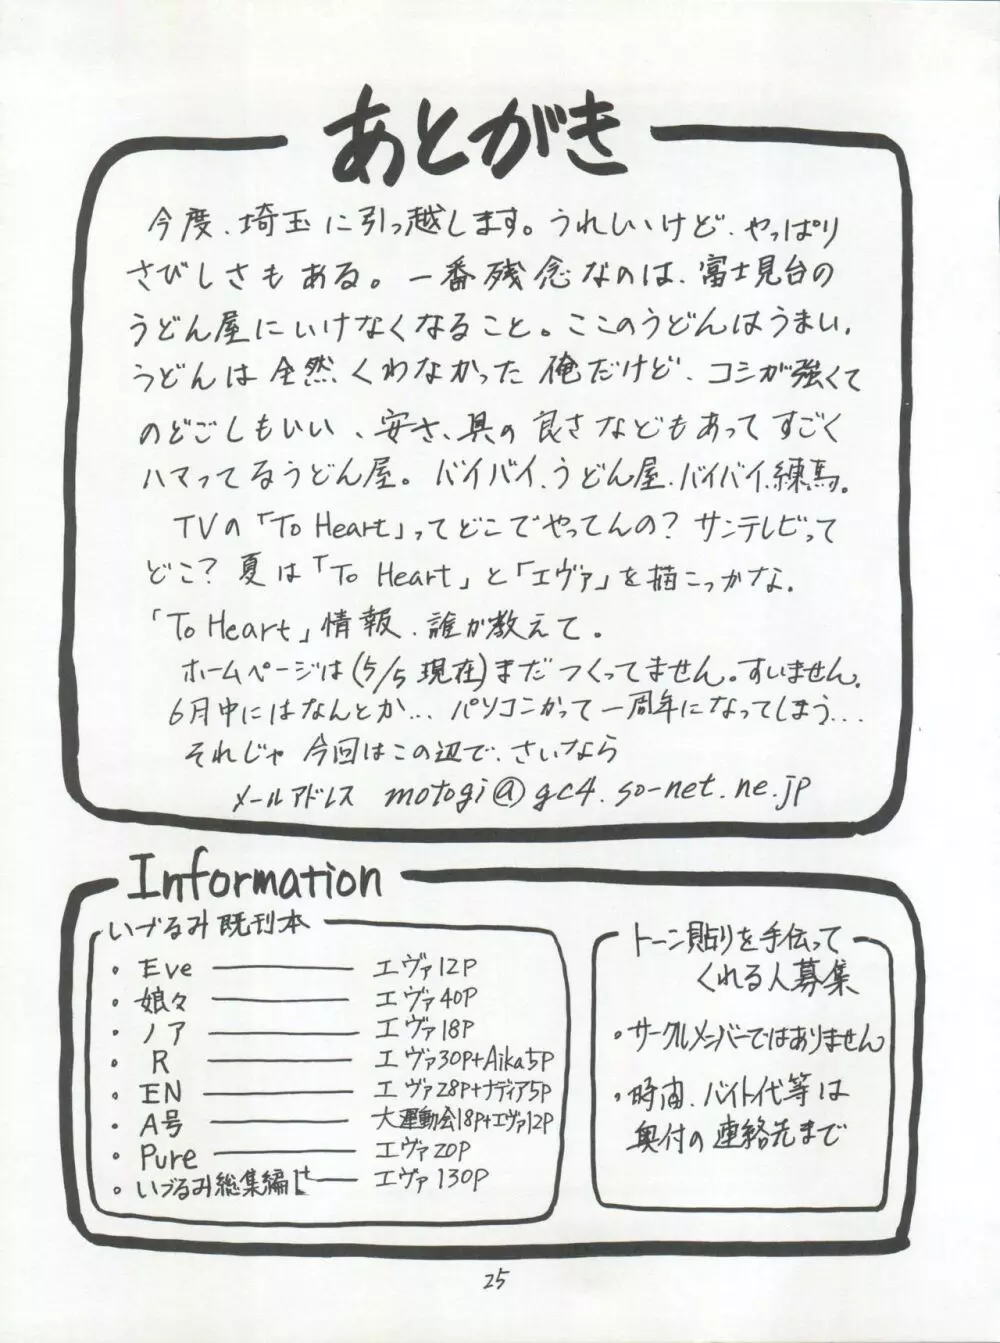 あとがき
今度、埼玉に引っ越します。うれしいけど、やっぱり
さびしさもある。一番残念なのは、富士見台の
うどん屋にいけなくなること。ここのうどんはうまい、
うどんは全然くわなかった俺だけど、コシが強くて
のどごしもいい、安さ、具の良さなどもあってすごく
ハマってるうどん屋。バイバイ、うどん屋、バイバイ、練馬。
TVの「To Heart」ってどこでやってんの?サンテレビって
どこ?夏は「To Heart」と「エヴァ」を描こっかな。
「To Heart」情報、誰か教えて。
ホームページは(5/5現在)まだつくってません。すいません。
6月中にはなんとか... パソコンかって一周年になってしまう...
それじゃ今回はこの辺で、さいなら
メールアドレス motogi@gc4.so-net.ne.jp
Information
いづるみ既刊本
・Eve ― エヴァ12P
・娘々 ― エヴァ40P
・ノア ― エヴァ18P
・R ― エヴァ30P+Aika5P
・EN ― エヴァ28P+ナディア5P
・A号 ― 大運動会18P+エヴァ12P
・Pure ― エヴァ20P
・いづるみ総集編 ― エヴァ130P
トーン貼りを手伝って
くれる人募集
・サークルメンバーではありません
・時間、バイト代等は
奥付の連絡先まで
25